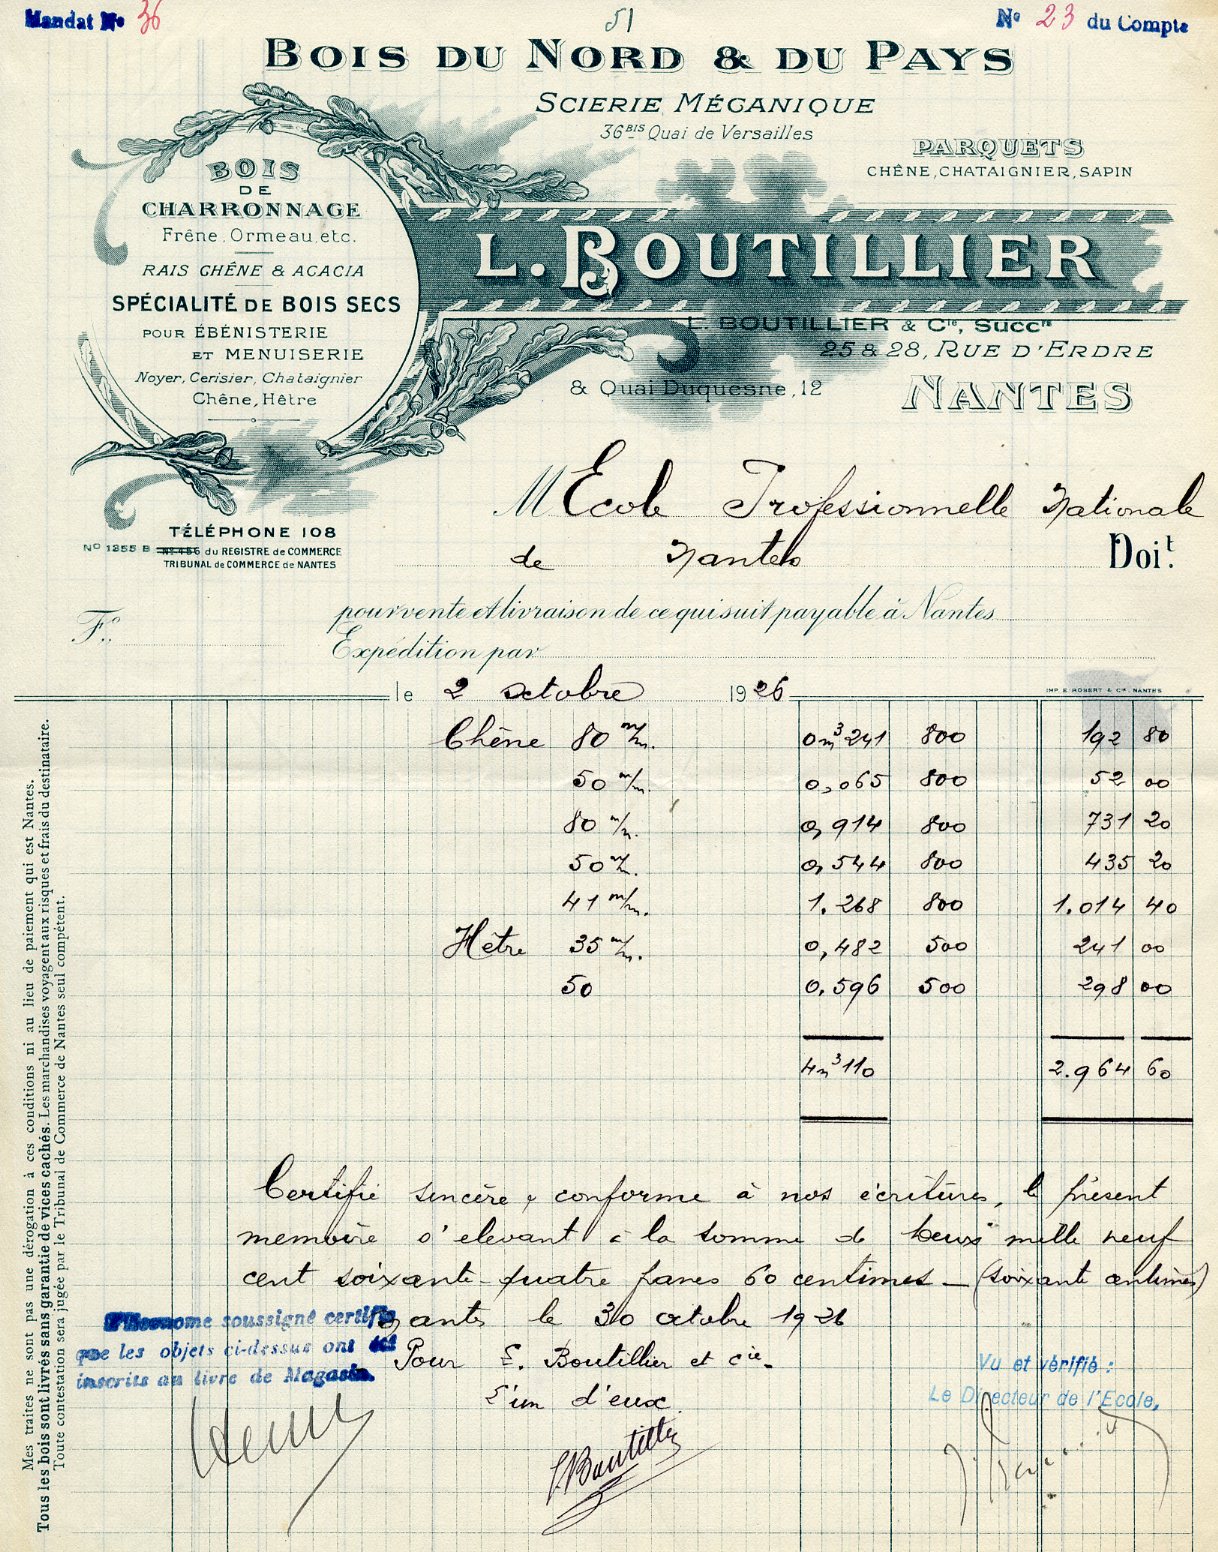 Mandat No 36
51
No 23 du Compte
BOIS DU NORD & DU PAYS
SCIERIE MÉCANIQUE
36BIS Quai de Versailles
PARQUETS
CHÊNE, CHATAIGNIER, SAPIN
BOIS
DE
CHARRONNAGE
Frêne, Ormeau, etc.
RAIS CHÊNE & ACACIA
SPÉCIALITÉ DE BOIS SECS
POUR ÉBÉNISTERIE
ET MENUISERIE
Noyer, Cerisier, Chataignier
Chêne, Hêtre
L. BOUTILLIER
L. BOUTILLIER & Cie, Succrs
25 & 28, RUE D'ERDRE
& Quai Duquesne, 12
NANTES
TÉLÉPHONE 108
No 1355 B No 456 du REGISTRE de COMMERCE
TRIBUNAL de COMMERCE de NANTES
M École Professionnelle Nationale
de Nantes Doit.
Fo.
pour vente et livraison de ce qui suit payable à Nantes
Expédition par
le 2 octobre 1926
IMP. E. ROBERT & Cie. NANTES
Chêne 80 m/m. 0m3 241 800 192 80
50 m/m. 0,065 800 52 00
80 m/m. 0,914 800 731 20
50 m/m. 0,544 800 435 20
41 m/m. 1.268 800 1.014 40
Hêtre 35 m/m. 0,482 500 241 00
50 0.596 500 298 00
4m3 110 2.964 60
Certifié sincère & conforme à nos écritures, le présent
mémoire s'élevant à la somme de deux mille neuf
cent soixante-quatre francs 60 centimes - (soixante centimes)
Nantes le 30 octobre 1926
Pour L. Boutillier et Cie.
L'un d'eux
L. Boutillier
L'Econome soussigné certifie
que les objets ci-dessus ont été
inscrits au livre de Magasin.
Vu et vérifié :
Le Directeur de l'Ecole,
Mes traites ne sont pas une dérogation à ces conditions ni au lieu de paiement qui est Nantes.
Tous les bois sont livrés sans garantie de vices cachés. Les marchandises voyagent aux risques et frais du destinataire.
Toute contestation sera jugée par le Tribunal de Commerce de Nantes seul compétent.